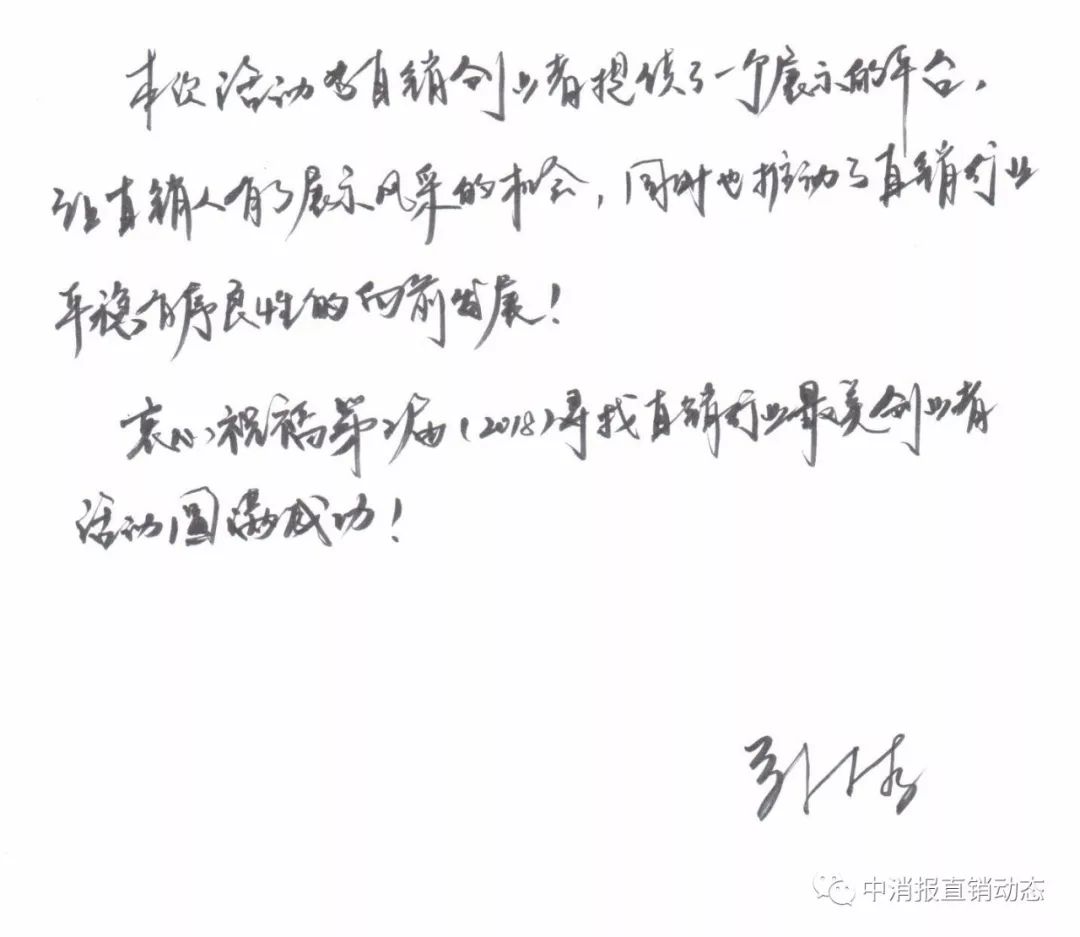 本次活动为直销创业者提供了一个展示的平台，
让直销人有了展示风采的机会，同时也推动了直销行业
平稳有序良性的向前发展！
衷心祝福第2届(2018)寻找直销行业最美创业者
活动圆满成功！
中消报直销动态